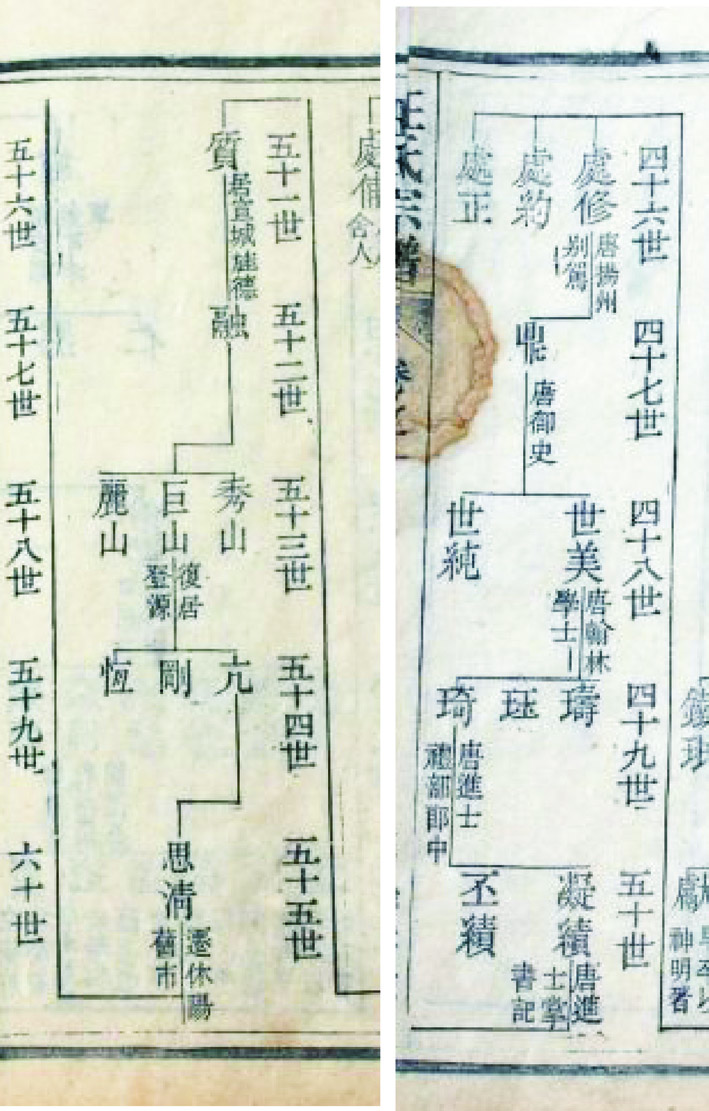 四十六世
處修
唐揚州
別駕
處約
處正
四十七世
鼎
唐御史
四十八世
世美
唐翰林
學士
世純
四十九世
璹
琦
唐進士
禮部郎中
五十世
凝績
唐進
士掌
書記
丕績
汪氏宗譜
舍人
五十一世
質
居宣城旌德
五十二世
融
五十三世
秀山
巨山
復居
登源
麗山
五十四世
亢
剛
恆
五十五世
思清
遷休陽
舊市
五十六世
五十七世
五十八世
五十九世
六十世